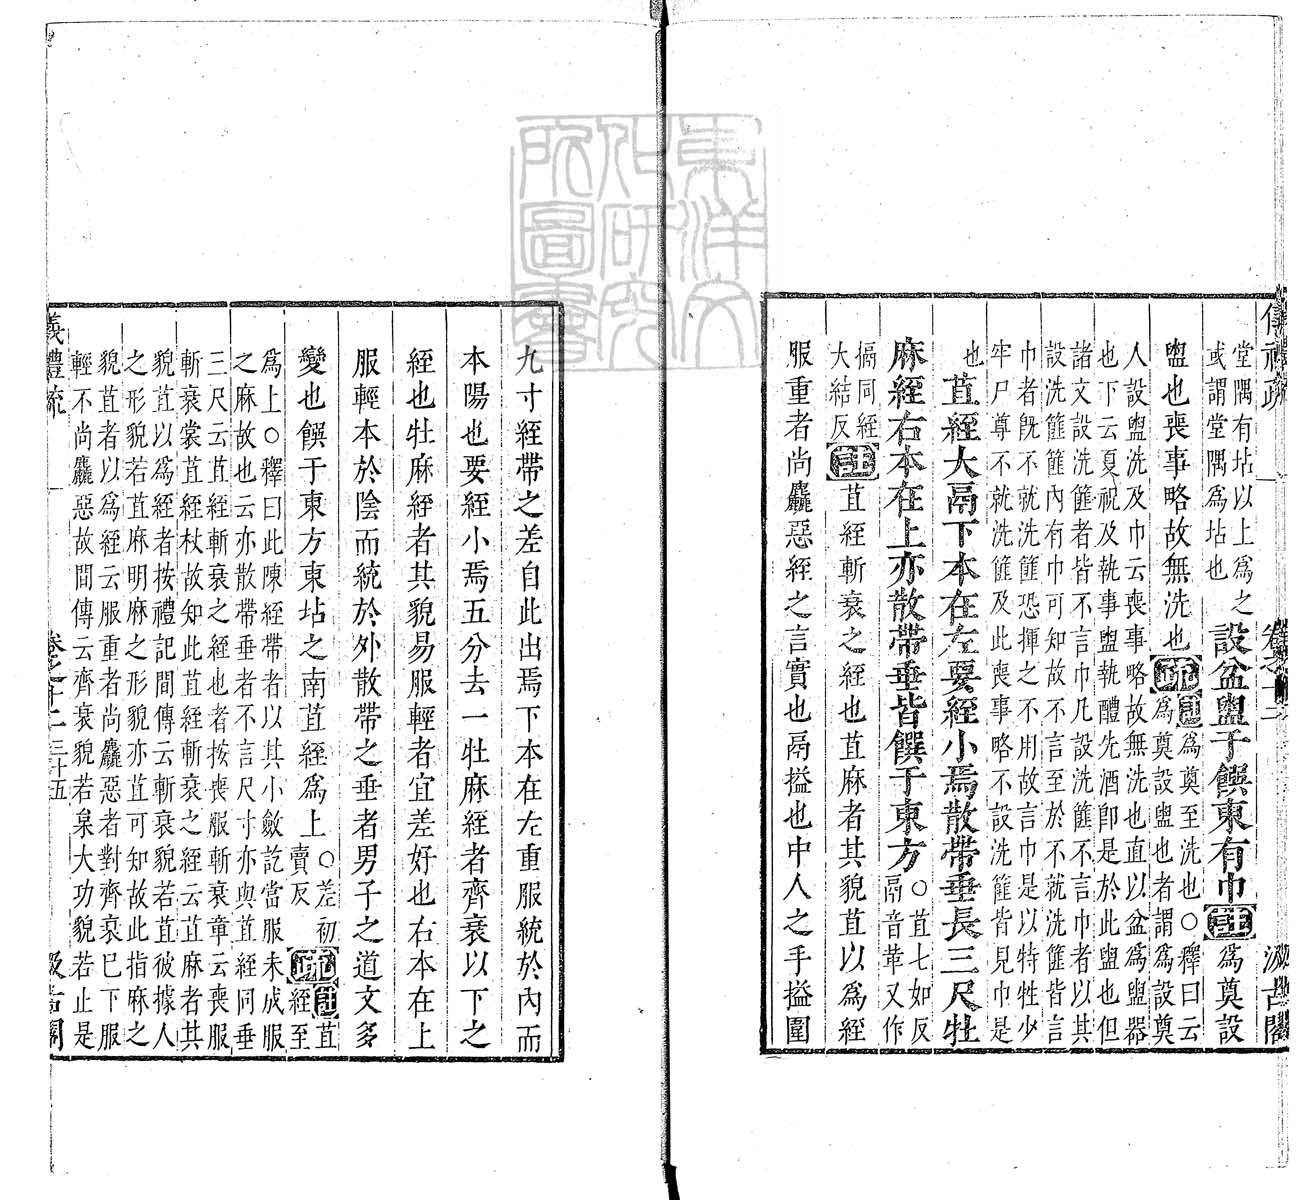 儀禮疏 卷之十二 汲古閣
堂隅有坫以上爲之
或謂堂隅爲坫也
設盆盥于饌東有巾註爲奠設
盥也喪事略故無洗也疏
註爲奠至洗也○釋曰云
爲奠設盥也者謂爲設奠
人設盥洗及巾云喪事略故無洗也直以盆爲盥器
也下云夏祝及執事盥執醴先酒卽是於此盥也但
諸文設洗篚者皆不言巾凡設洗篚不言巾者以其
設洗篚篚內有巾可知故不言至於不就洗篚皆言
巾者旣不就洗篚恐揮之不用故言巾是以特牲少
牢尸尊不就洗篚及此喪事略不設洗篚皆見巾是
也
苴絰大鬲下本在左要絰小焉散帶垂長三尺牡
麻絰右本在上亦散帶垂皆饌于東方
○苴七如反
鬲音革又作
搹同絰
大結反
註苴絰斬衰之絰也苴麻者其貌苴以爲絰
服重者尚麤惡絰之言實也鬲搤也中人之手搤圍
九寸絰帶之差自此出焉下本在左重服統於內而
本陽也要絰小焉五分去一牡麻絰者齊衰以下之
絰也牡麻絰者其貌易服輕者宜差好也右本在上
服輕本於陰而統於外散帶之垂者男子之道文多
變也饌于東方東坫之南苴絰爲上
○差初
賣反
疏
註苴
絰至
爲上○釋曰此陳絰帶者以其小斂訖當服未成服
之麻故也云亦散帶垂者不言尺寸亦與苴絰同垂
三尺云苴絰斬衰之絰也者按喪服斬衰章云喪服
斬衰裳苴絰杖故知此苴絰斬衰之絰云苴麻者其
貌苴以爲絰者按禮記間傳云斬衰貌若苴彼據人
之形貌若苴麻明麻之形貌亦苴可知故此指麻之
貌苴者以爲絰云服重者尚麤惡者對齊衰已下服
輕不尚麤惡故間傳云齊衰貌若枲大功貌若止是
義禮疏 卷之十二 三十五 汲古閣
東洋文化研究所圖書